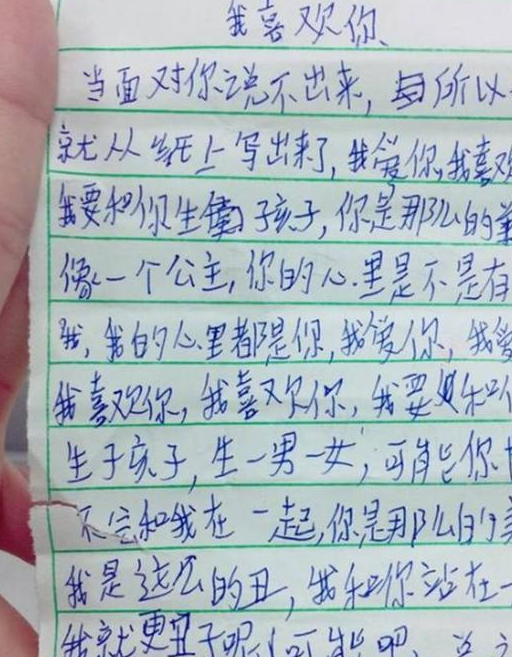 我喜欢你
当面对你说不出来，所以
就从纸上写出来了，我爱你，我喜欢
我要和你生子孩子，你是那么的美
像一个公主，你的心里是不是有
我，我的心里都是你，我爱你，我爱
我喜欢你，我喜欢你，我要和你
生子孩子，生一男一女，可能你
不会和我在一起，你是那么的美
我是这么的丑，我和你站在一
我就更丑了呢，可能吧，